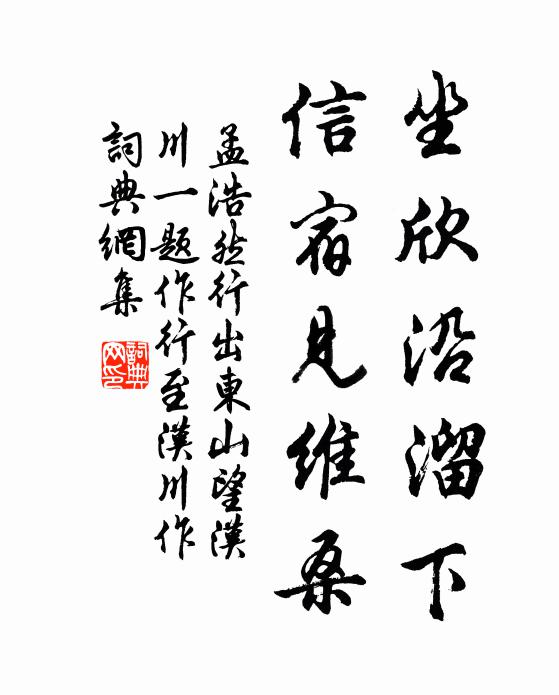 坐欣沿溜下
信宿見維桑
孟浩然行出東山望漢
川一題作行至漢川作
詞典網集
詞典
网印